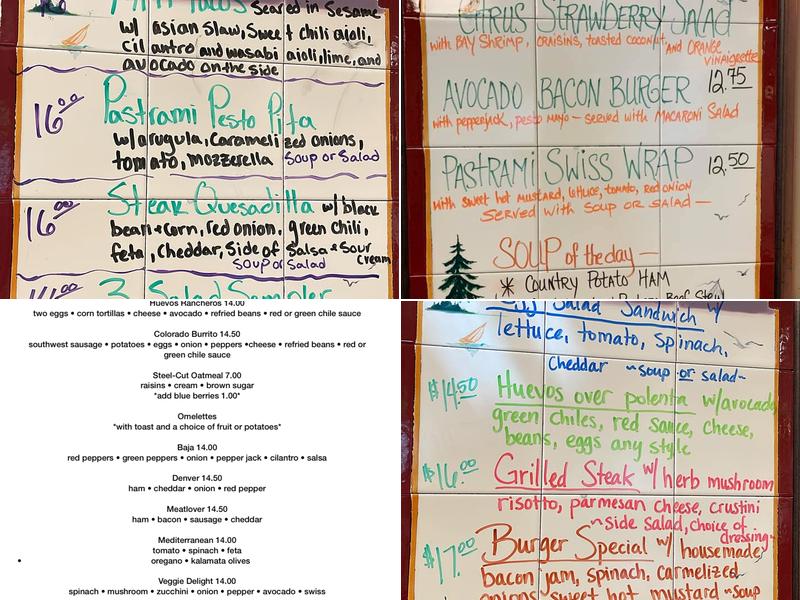 Seared in Sesame
w/ asian slaw, Sweet chili aioli,
cilantro and wasabi aioli, lime, and
avocado on the side
16.00 Pastrami Pesto Pita
w/ arugula, Caramelized onions,
tomato, mozzerella Soup or Salad
16.00 Steak Quesadilla w/ black
bean + corn, red onion, green chili,
feta, Cheddar, Side of Salsa + Sour
Cream
soup or Salad
3 Salad Sampler
CITRUS STRAWBERRY SALAD
with BAY Shrimp, CRAISINS, toasted coconut, and ORANGE
vinaigrette
AVOCADO BACON BURGER 12.75
with pepperjack, pesto mayo - served with MACARONI SALAD
PASTRAMI SWISS WRAP 12.50
with sweet hot mustard, lettuce, tomato, red onion
SERVED with SOUP OR SALAD -
SOUP of the day -
* COUNTRY POTATO HAM
Potato Beef Stew
Huevos Rancheros 14.00
two eggs • corn tortillas • cheese • avocado • refried beans • red or green chile sauce
Colorado Burrito 14.50
southwest sausage • potatoes • eggs • onion • peppers •cheese • refried beans • red or
green chile sauce
Steel-Cut Oatmeal 7.00
raisins • cream • brown sugar
*add blue berries 1.00*
Omelettes
*with toast and a choice of fruit or potatoes*
Baja 14.00
red peppers • green peppers • onion • pepper jack • cilantro • salsa
Denver 14.50
ham • cheddar • onion • red pepper
Meatlover 14.50
ham • bacon • sausage • cheddar
Mediterranean 14.00
tomato • spinach • feta
oregano • kalamata olives
Veggie Delight 14.00
spinach • mushroom • zucchini • onion • pepper • avocado • swiss
Egg Salad Sandwich w/
lettuce, tomato, spinach,
Cheddar ~soup or salad~
$14.50 Huevos over polenta w/avocado,
green chiles, red sauce, cheese,
beans, eggs any style
$16.00 Grilled Steak w/ herb mushroom
risotto, parmesan cheese, crustini
~side salad, choice of
dressing~
$17.00 Burger Special w/ housemade
bacon jam, spinach, carmelized
onions, sweet hot mustard ~soup